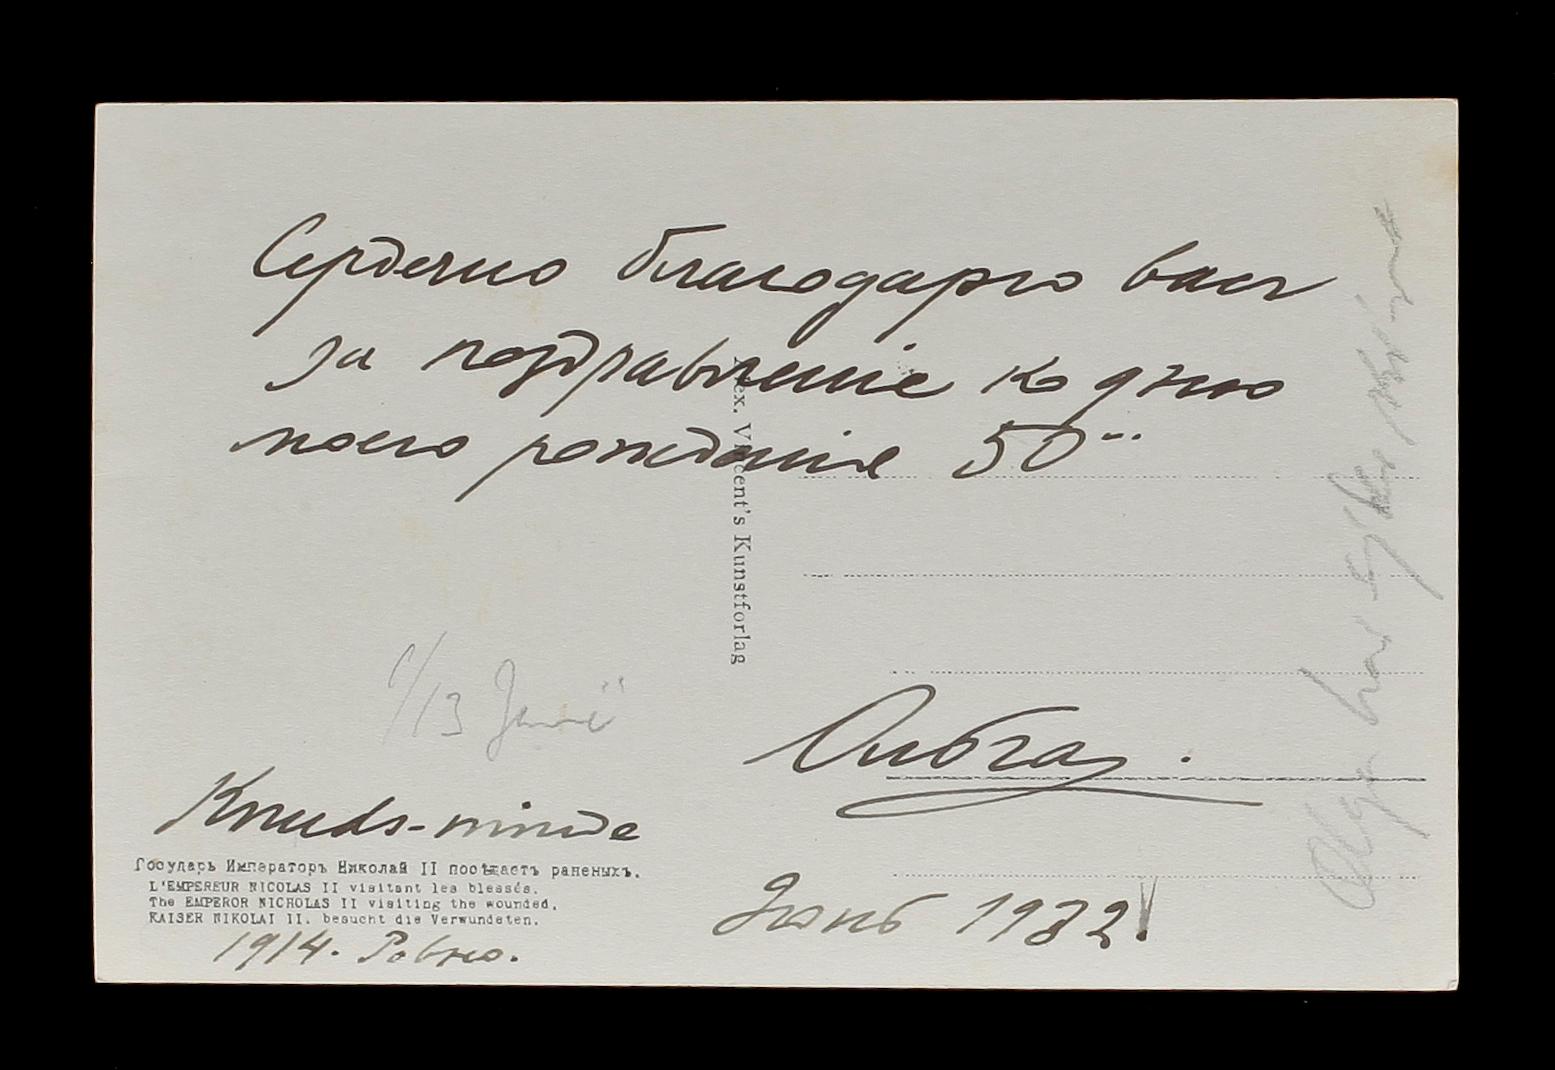 Сердечно благодарю васъ
за поздравленіе ко дню
моего рожденія 50"
Alex. Vincent's Kunstforlag
1/13 Junï
Ольга.
Knuds-minde
Государь Императоръ Николай II посѣщаетъ раненыхъ.
L'EMPEREUR NICOLAS II visitant les blessés.
The EMPEROR NICHOLAS II visiting the wounded.
KAISER NIKOLAI II. besucht die Verwundeten.
1914. Ровно.
Іюнь 1932.
Olga